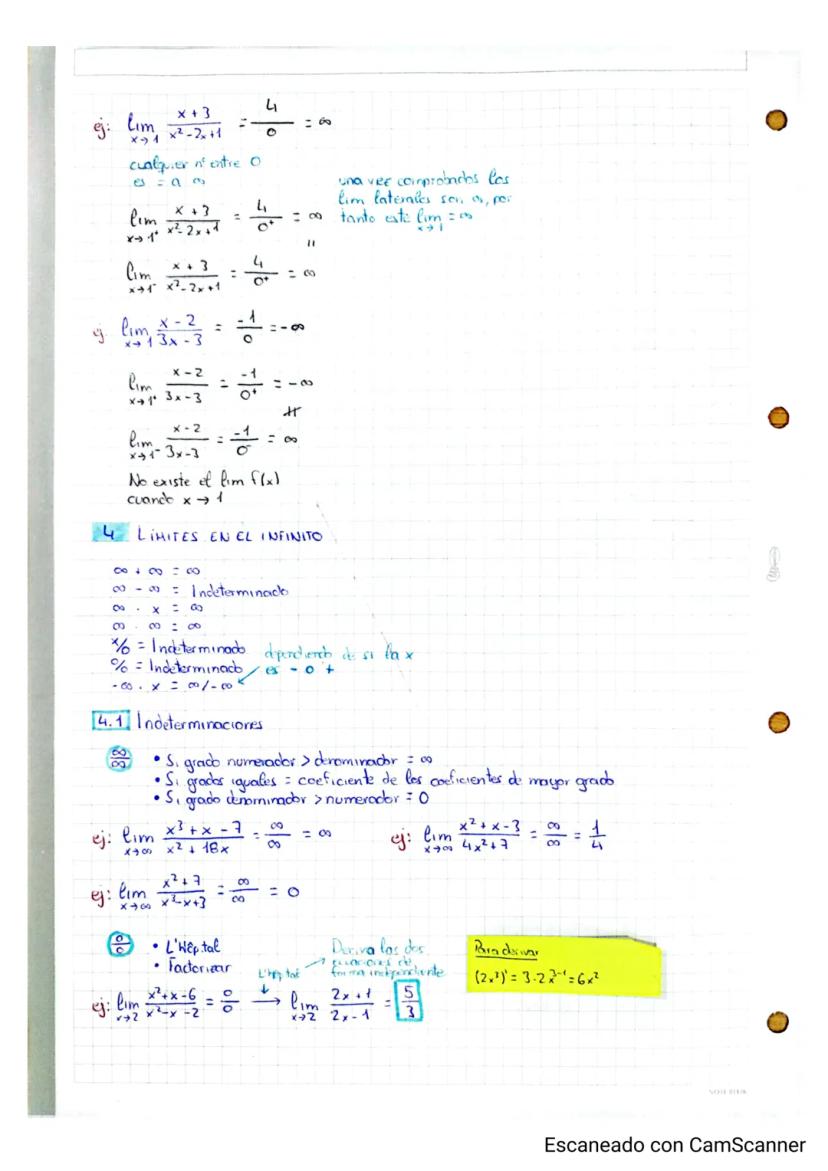 ej: lim x→1 x+3 / x²-2x+1 = 4/0 = ∞
cualquier nº entre 0
es = a ∞
una vez comprobados los
lim laterales son ∞, por
tanto este lim x→1 = ∞
lim x→1⁺ x+3 / x²-2x+1 = 4/0⁺ = ∞
"
lim x→1⁻ x+3 / x²-2x+1 = 4/0⁺ = ∞
ej. lim x→1 x-2 / 3x-3 = -1/0 = -∞
lim x→1⁺ x-2 / 3x-3 = -1/0⁺ = -∞
lim x→1⁻ x-2 / 3x-3 = -1/0⁻ = ∞
No existe el lim f(x)
cuando x → 1
4 LÍMITES EN EL INFINITO
∞ + ∞ = ∞
∞ - ∞ = Indeterminado
∞ · x = ∞
∞ · ∞ = ∞
x/0 = Indeterminado
0/0 = Indeterminado
dependiendo de si la x
es - o +
-∞ · x = ∞/-∞
4.1 Indeterminaciones
∞/∞ • Si grado numerador > denominador = ∞
• Si grados iguales = coeficiente de los coeficientes de mayor grado
• Si grado denominador > numerador = 0
ej: lim x→∞ x³+x-7 / x²+18x = ∞/∞ = ∞
ej: lim x→∞ x²+x-3 / 4x²+7 = ∞/∞ = 1/4
ej: lim x→∞ x²+7 / x²-x+3 = ∞/∞ = 0
0/0 • L'Hôpital
• Factorizar
L'Hôpital
Deriva las dos
ecuaciones de
forma independiente
Para derivar
(2x³)' = 3·2x³⁻¹ = 6x²
ej: lim x→2 x²+x-6 / x²-x-2 = 0/0 → lim x→2 2x+1 / 2x-1 = 5/3
Escaneado con CamScanner